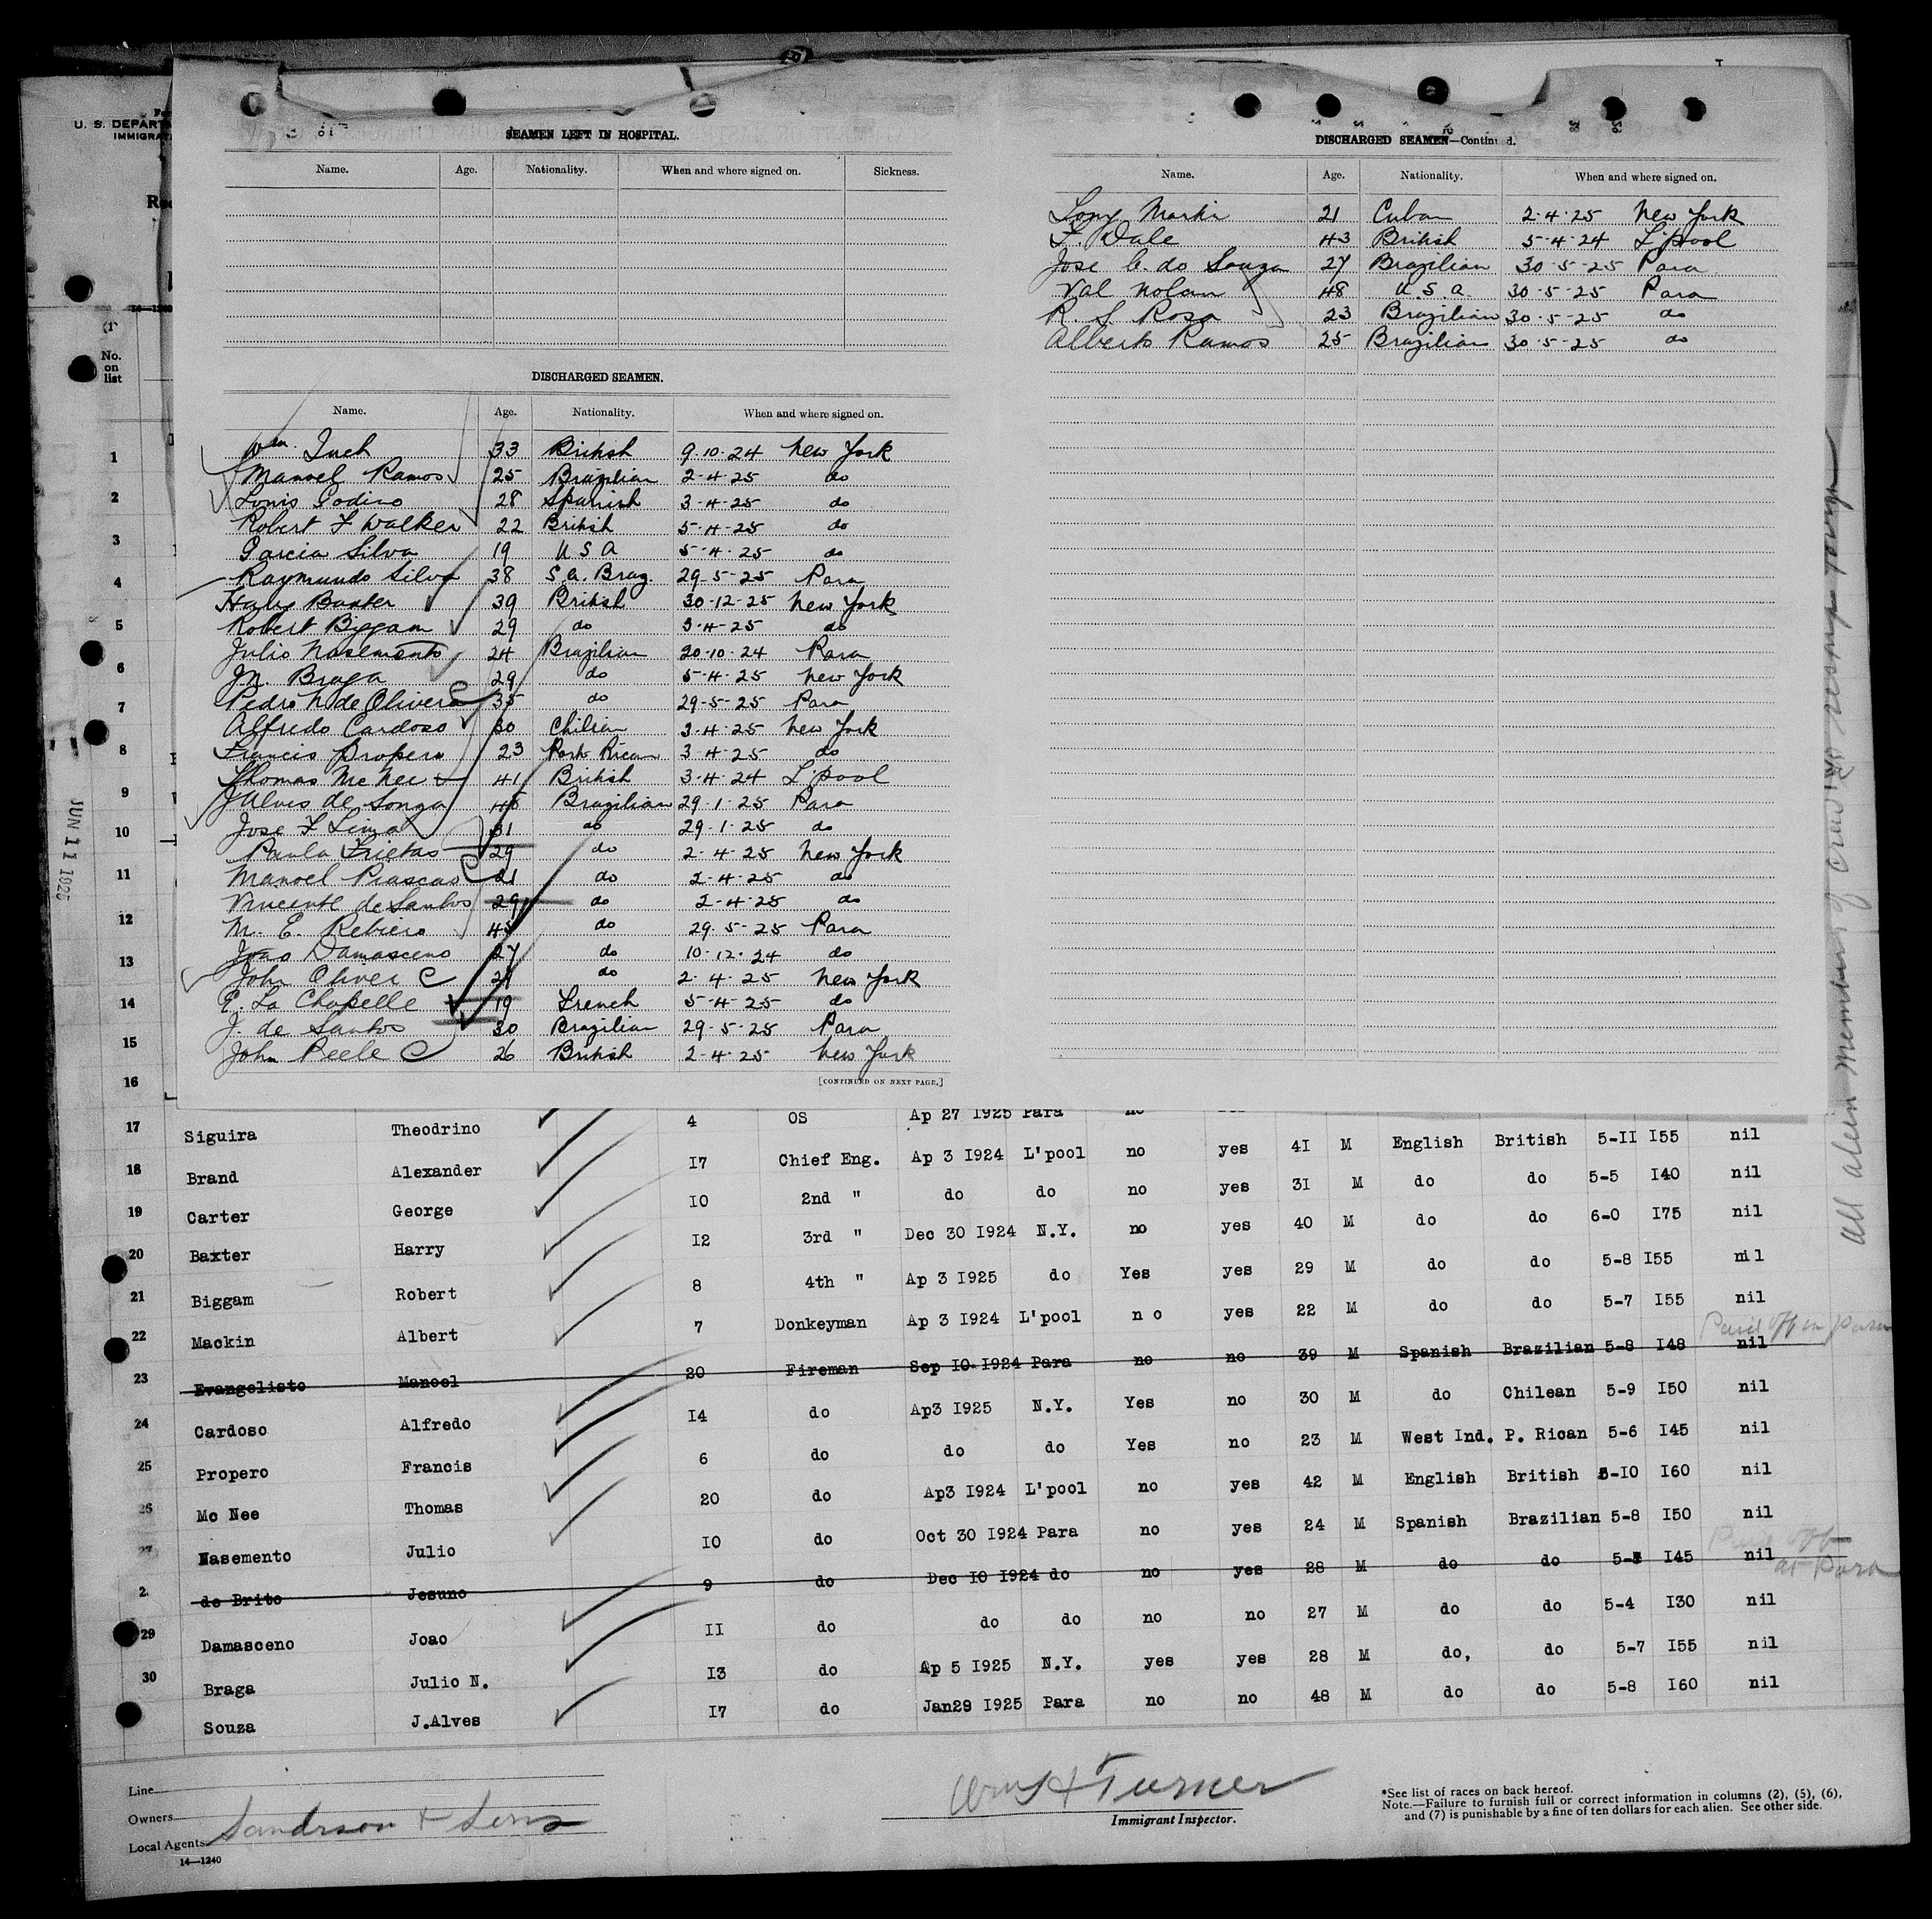 U. S. DEPART
IMMIGRA
No.
on
list
SEAMEN LEFT IN HOSPITAL.
Name. Age. Nationality. When and where signed on. Sickness.
DISCHARGED SEAMEN.
Name. Age. Nationality. When and where signed on.
Wm. Inch 33 British 9.10.24 New York
Manoel Ramos 25 Brazilian 2-4-25 do
Louis Godino 28 Spanish 3-4-25 do
Robert F Walker 22 British 5-4-25 do
Garcia Silva 19 U S A 5-4-25 do
Raymundo Silva 38 S.a. Braz. 29-5-25 Para
Harry Baxter 39 British 30-12-25 New York
Robert Biggam 29 do 3-4-25 do
Julio Nasemento 24 Brazilian 20-10-24 Para
JN. Braga 29 do 5-4-25 New York
Pedro N de Olivera 35 do 29-5-25 Para
Alfredo Cardoso 30 Chilian 3-4-25 New York
Francis Propero 23 Porto Rican 3-4-25 do
Thomas Mc Nee 41 British 3-4-24 L'pool
J Alves de Souza 48 Brazilian 29-1-25 Para
Jose F Lima 31 do 29-1-25 do
Paula Frietas 29 do 2-4-25 New York
Manoel Piascao 21 do 2-4-25 do
Vincente de Santos 29 do 2-4-25 do
M. E. Rebiero 45 do 29-5-25 Para
Joao Damasceno 27 do 10-12-24 do
John Oliver C do 2-4-25 New York
E. La Chapelle 19 French 5-4-25 do
J. de Santos 30 Brazilian 29-5-25 Para
John Peele C 26 British 2-4-25 New York
[CONTINUED ON NEXT PAGE.]
DISCHARGED SEAMEN—Continued.
Name. Age. Nationality. When and where signed on.
Tony Martin 21 Cuban 2-4-25 New York
F. Dale 43 British 5-4-24 L'pool
Jose C. do Souza 27 Brazilian 30-5-25 Para
Val Nolan 48 U.S.A. 30-5-25 Para
R. S. Rosa 23 Brazilian 30-5-25 do
Alberto Ramos 25 Brazilian 30-5-25 do
1
2
3
4
5
6
7
8
9
10
11
12
13
14
15
16
JUN 11 1925
17 4 OS Ap 27 1925 Para no
Siguira Theodrino
18 17 Chief Eng. Ap 3 1924 L'pool no yes 41 M English British 5-11 155 nil
Brand Alexander
19 10 2nd " do do no yes 31 M do do 5-5 140 nil
Carter George
20 12 3rd " Dec 30 1924 N.Y. no yes 40 M do do 6-0 175 nil
Baxter Harry
21 8 4th " Ap 3 1925 do Yes yes 29 M do do 5-8 155 nil
Biggam Robert
22 7 Donkeyman Ap 3 1924 L'pool no yes 22 M do do 5-7 155 nil
Mackin Albert
Paid off in Para
23 20 Fireman Sep 10 1924 Para no no 39 M Spanish Brazilian 5-8 148 nil
Evangelisto Manoel
24 14 do Ap3 1925 N.Y. Yes no 30 M do Chilean 5-9 150 nil
Cardoso Alfredo
25 6 do do do Yes no 23 M West Ind. P. Rican 5-6 145 nil
Propero Francis
26 20 do Ap3 1924 L'pool no yes 42 M English British 5-10 160 nil
Mc Nee Thomas
27 10 do Oct 30 1924 Para no yes 24 M Spanish Brazilian 5-8 150 nil
Nasemento Julio
Paid off at Para
2 9 do Dec 10 1924 do no yes 28 M do do 145 nil
de Brito Jesuno
29 11 do do do no no 27 M do do 5-4 130 nil
Damasceno Joao
30 13 do Ap 5 1925 N.Y. yes yes 28 M do, do 5-7 155 nil
Braga Julio N.
17 do Jan29 1925 Para no no 48 M do do 5-8 160 nil
Souza J.Alves
Line
Owners
Local Agents Sandrson & Sons
14—1240
Wm H Turner
Immigrant Inspector.
*See list of races on back hereof.
Note.—Failure to furnish full or correct information in columns (2), (5), (6),
and (7) is punishable by a fine of ten dollars for each alien. See other side.
All alien members of crew